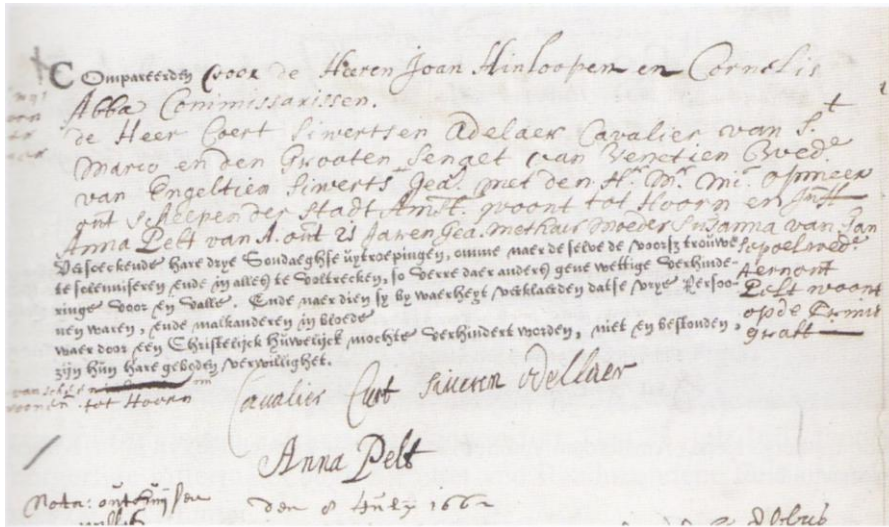 Compareerden voor de Heeren Joan Hinloopen en Cornelis
Abba Commissarissen.
de Heer Coert Siwertsen Adelaer Cavalier van St
Marco en den Grooten van Venetien Wede
van Engeltien Siwerts geas. met den Hr. Mr. opmeer
out Scheepen der Stadt Amst. woont tot Hoorn en
Anna Pelt van A. out 21 Jaren gea. met haer moeder Susanna van
Versoeckende hare drye Sondaeghse uytroepingen, omme naer de selve de voorsz trouwe
te solemniseren ende in alles te voltrecken, so verre daer anders gene wettige verhinde-
ringe voor en valle. Ende naer dien sy by waerheyt verklaerden datse vrye Persoo-
nen waren, ende malkanderen in bloede
waer door een Christelijck Huwelijck mochte verhindert worden, niet en bestonden,
zijn hun hare geboden verwillighet.
wede
Aernout
Pelt woont
op de
graft
tot Hoorn
Cavalier Curt Siveren Adellaer
Anna Pelt
Nota:
den 8 July 166